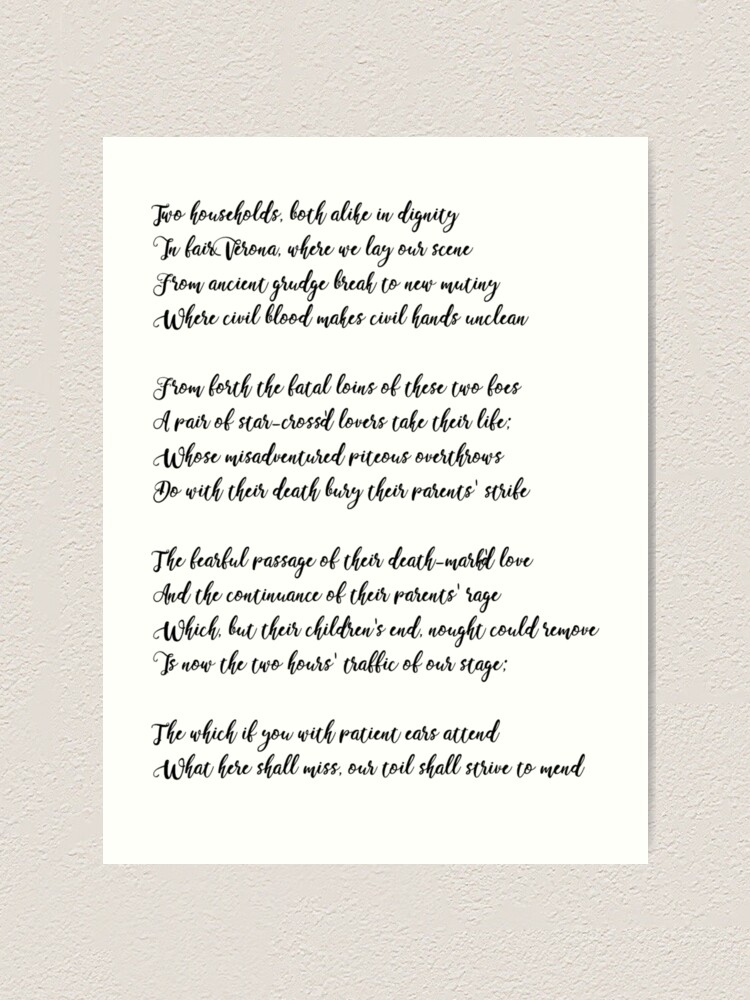 Two households, both alike in dignity
In fair Verona, where we lay our scene
From ancient grudge break to new mutiny
Where civil blood makes civil hands unclean
From forth the fatal loins of these two foes
A pair of star-cross'd lovers take their life;
Whose misadventured piteous overthrows
Do with their death bury their parents' strife
The fearful passage of their death-mark'd love
And the continuance of their parents' rage
Which, but their children's end, nought could remove
Is now the two hours' traffic of our stage;
The which if you with patient ears attend
What here shall miss, our toil shall strive to mend